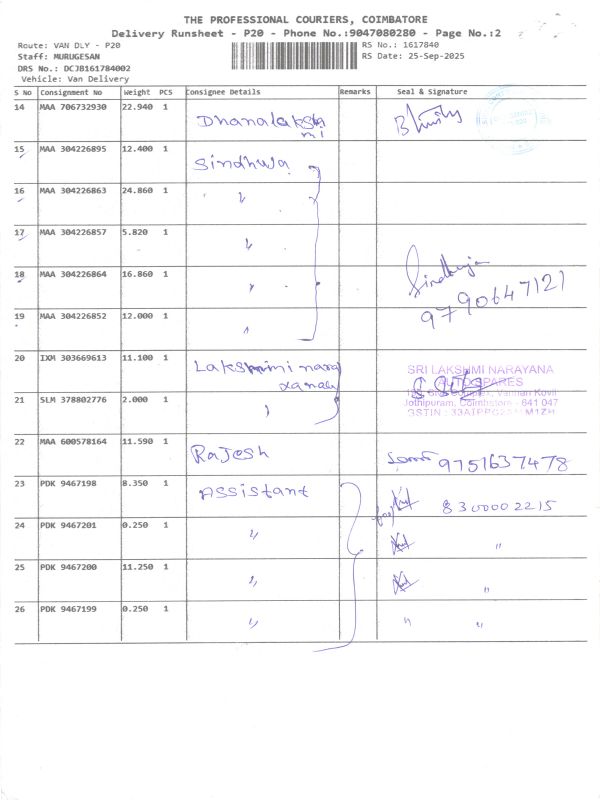 THE PROFESSIONAL COURIERS, COIMBATORE
Delivery Runsheet - P20 - Phone No.:9047080280 - Page No.:2
Route: VAN DLY - P20 RS No.: 1617840
Staff: MURUGESAN RS Date: 25-Sep-2025
DRS No.: DCJB161784002
Vehicle: Van Delivery
S No Consignment No Weight PCS Consignee Details Remarks Seal & Signature
14 MAA 706732930 22.940 1 Dhanalakshmi
15 MAA 304226895 12.400 1 Sindhuja
16 MAA 304226863 24.860 1 "
17 MAA 304226857 5.820 1 "
18 MAA 304226864 16.860 1 " Sindhuja
9790647121
19 MAA 304226852 12.000 1 "
20 IXM 303669613 11.100 1 Lakshmi nara
yanan
SRI LAKSHMI NARAYANA
AUTO SPARES
21 SLM 378802776 2.000 1 "
Jothipuram, Coimbatore - 641 047
22 MAA 600578164 11.590 1 Rajesh 9751637478
23 PDK 9467198 8.350 1 Assistant 8300002215
24 PDK 9467201 0.250 1 " "
25 PDK 9467200 11.250 1 " "
26 PDK 9467199 0.250 1 " " "